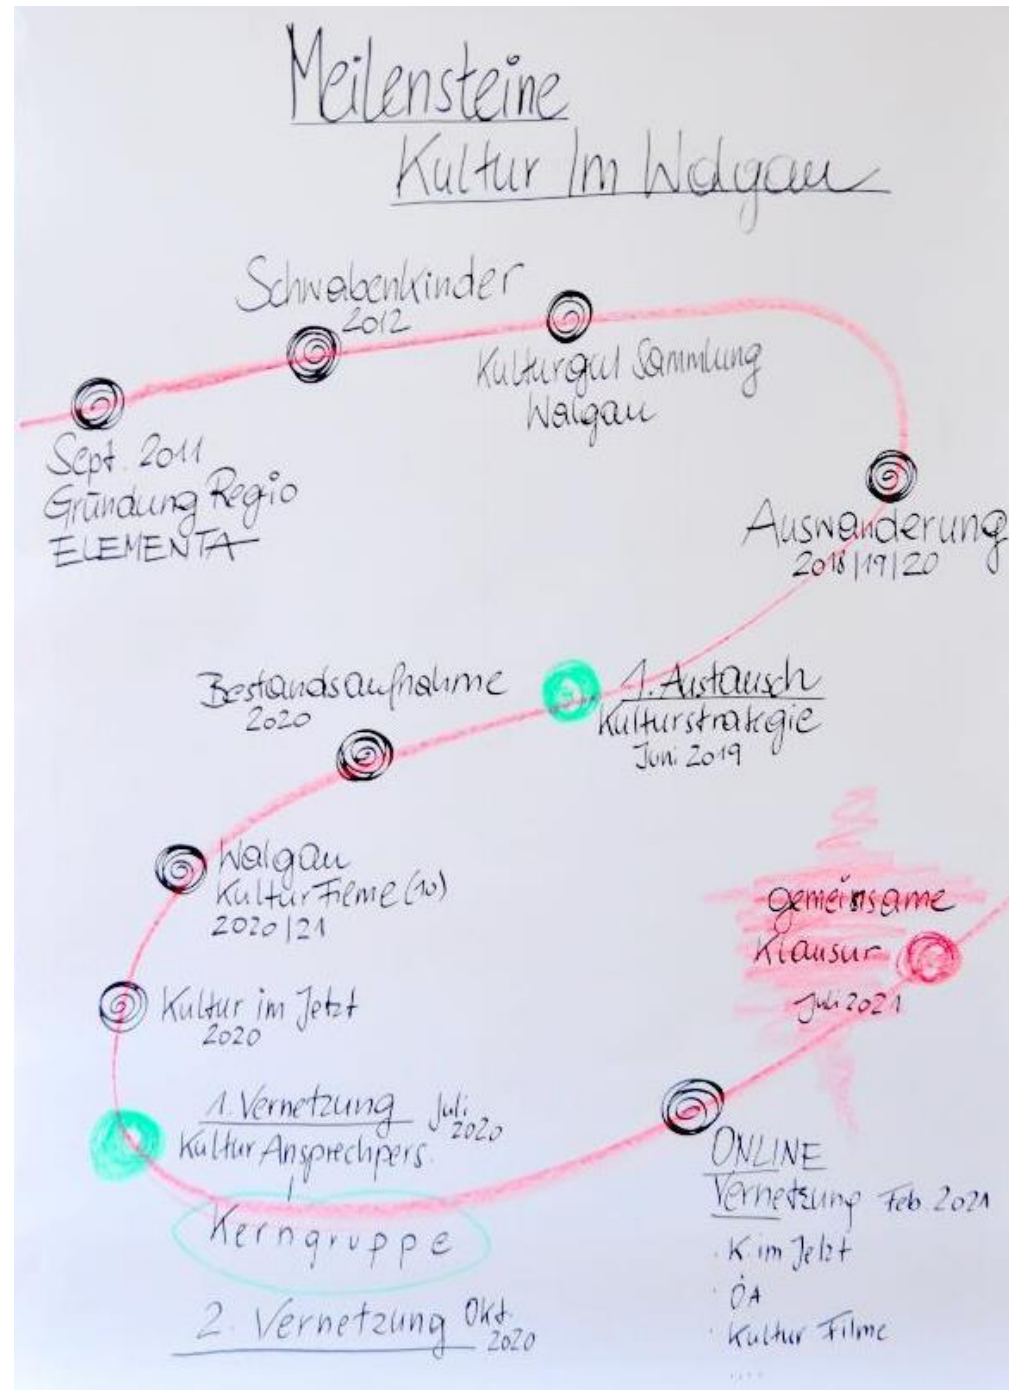 Meilensteine
Kultur Im Walgau
Schwabenkinder
2012
Kulturgut Sammlung
Walgau
Sept. 2011
Gründung Regio
ELEMENTA
Auswanderung
2018/19/20
1. Austausch
Kulturstrategie
Juni 2019
Bestandsaufnahme
2020
Walgau
Kultur Filme (10)
2020/21
gemeinsame
Klausur
Juli 2021
Kultur im Jetzt
2020
1. Vernetzung Juli 2020
Kultur Ansprechpers.
Kerngruppe
2. Vernetzung Okt. 2020
ONLINE
Vernetzung Feb. 2021
· K. im Jetzt
· ÖA
· Kultur Filme
....